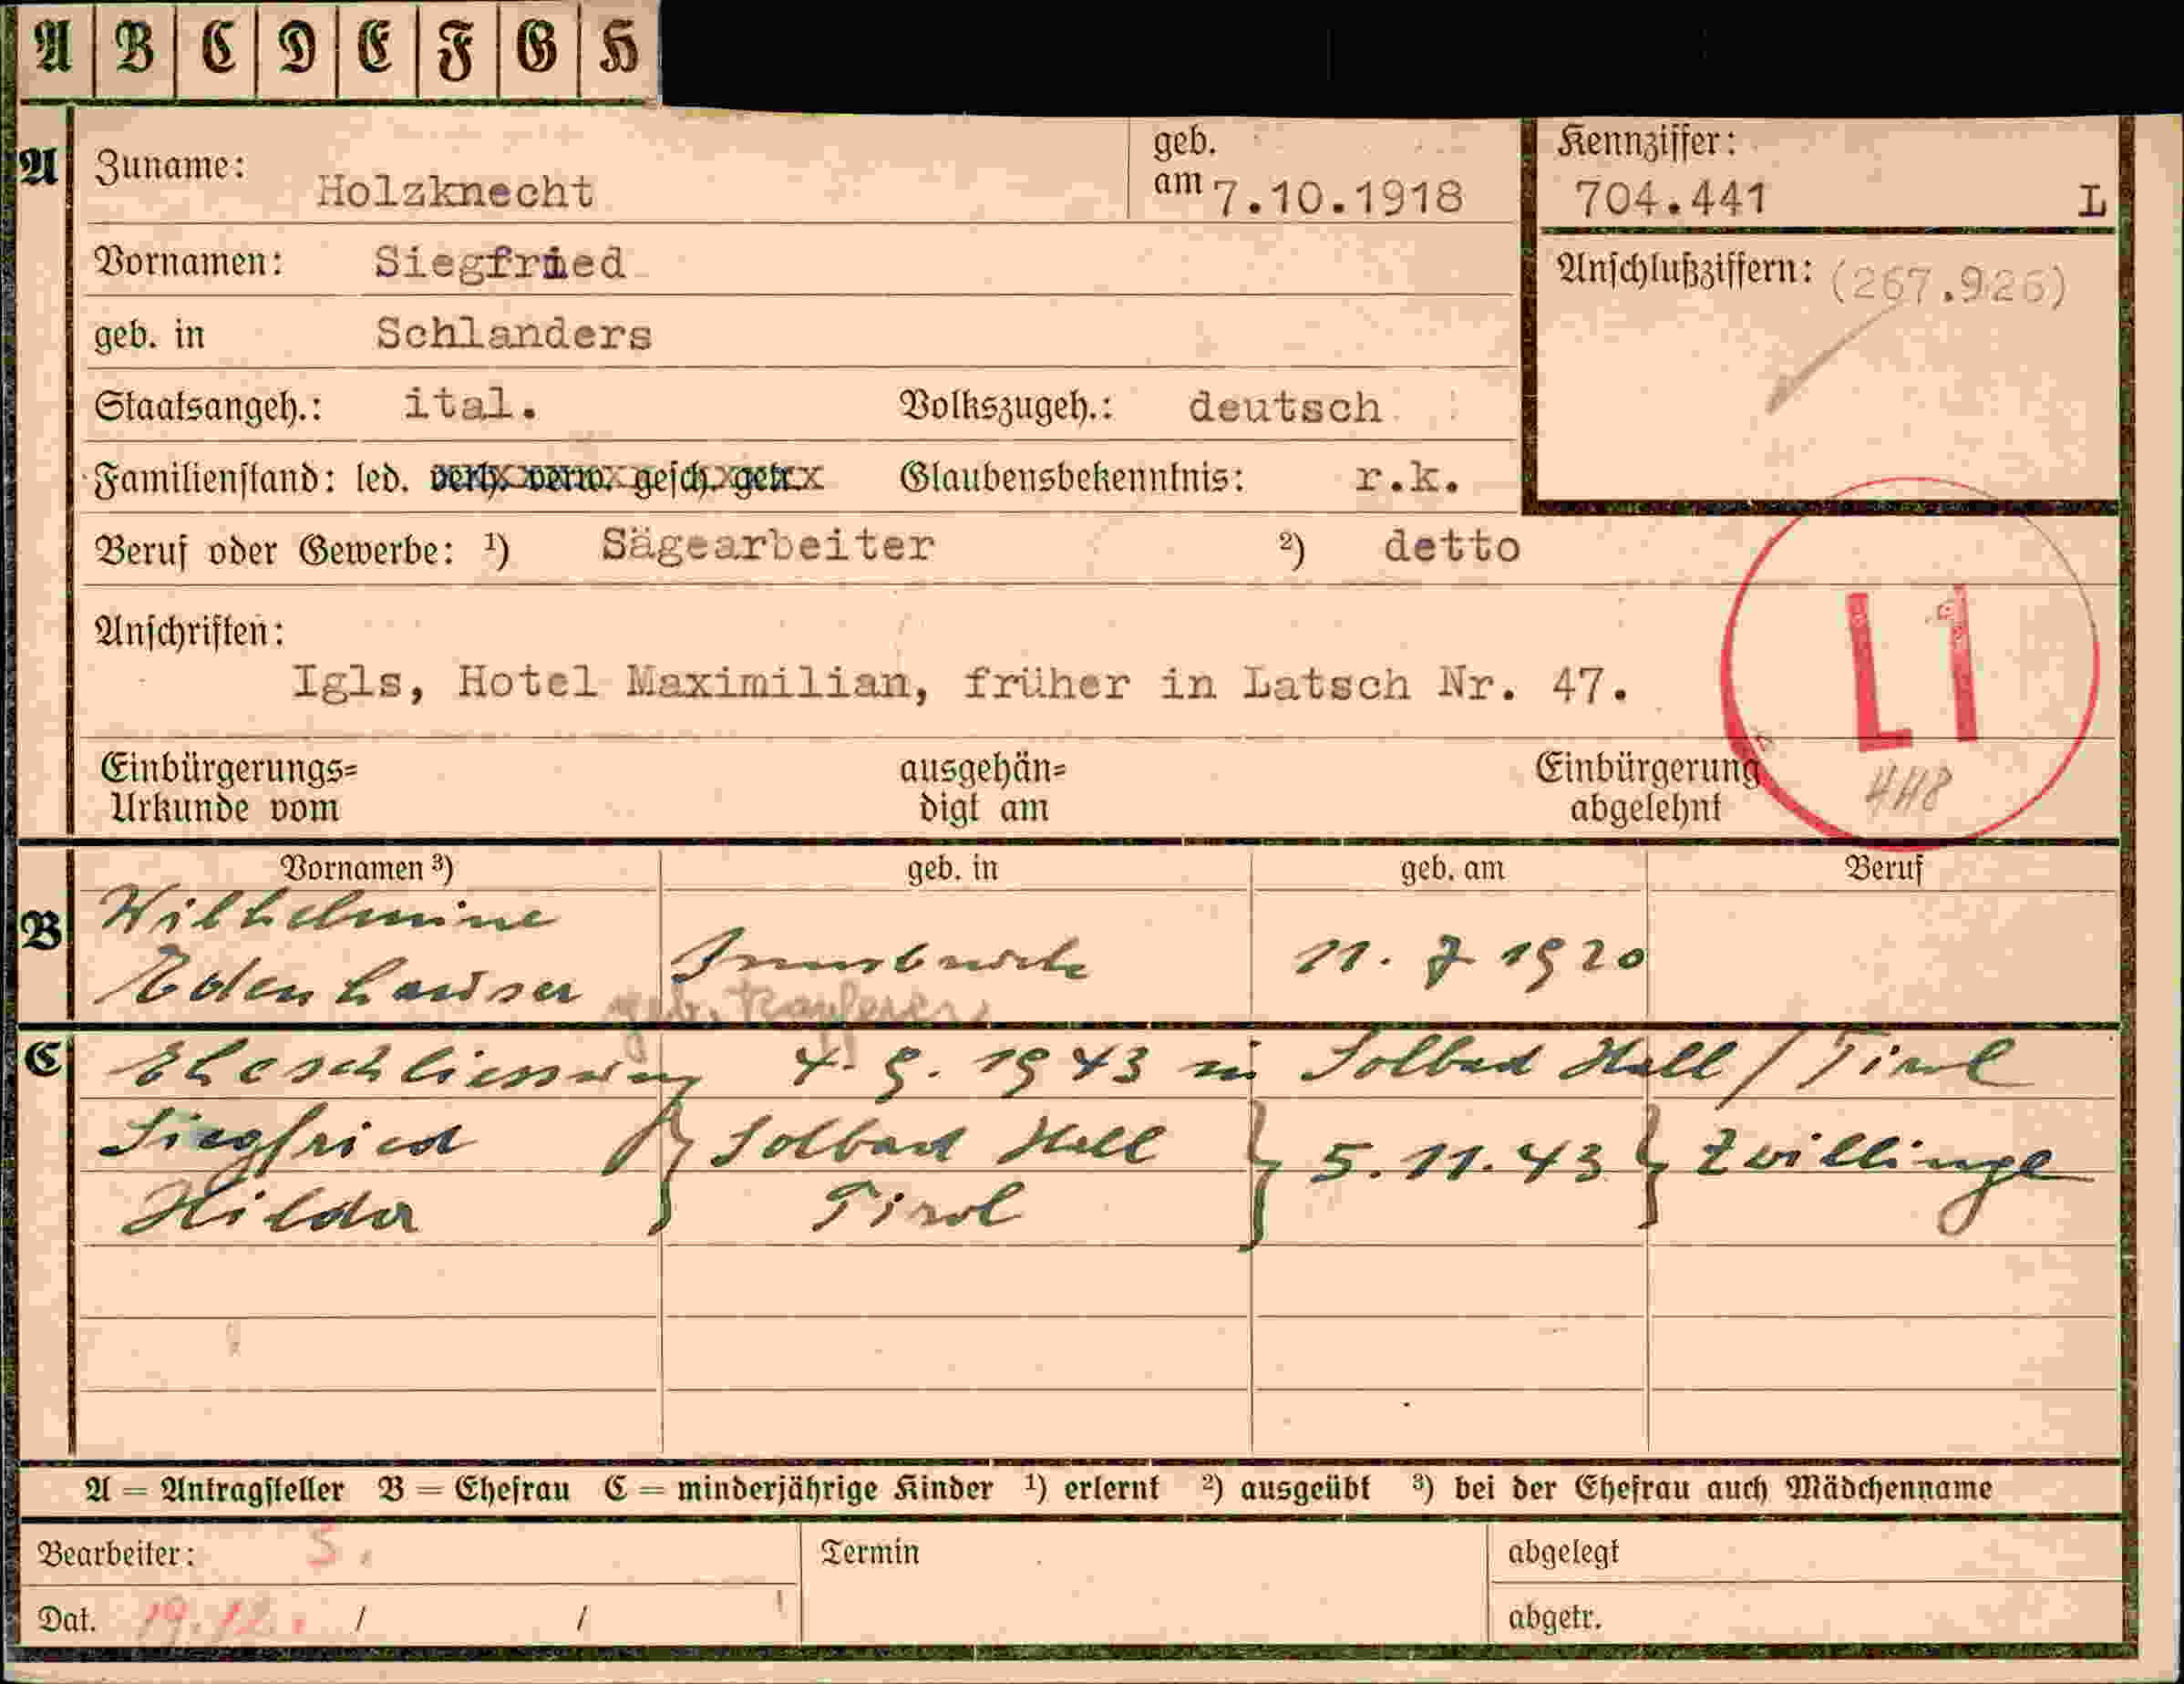 A B C D E F G H
A Zuname: Holzknecht geb. am 7.10.1918 Kennziffer: 704.441 L
Vornamen: Siegfried Anschlußziffern: (267.926)
geb. in Schlanders
Staatsangeh.: ital. Volkszugeh.: deutsch
Familienstand: led. verh. verw. gesch. getr. Glaubensbekenntnis: r.k.
Beruf oder Gewerbe: ¹) Sägearbeiter ²) detto
Anschriften: L1
Igls, Hotel Maximilian, früher in Latsch Nr. 47.
Einbürgerungs= ausgehän= Einbürgerung
Urkunde vom digt am abgelehnt
Vornamen ³) geb. in geb. am Beruf
B Wilhelmine
Edenhauser Innsbruck 11. 7 1920
geb.
C Eheschliessung 4. 9. 1943 in Solbad Hall / Tirol
Siegfried } Solbad Hall } 5. 11. 43 } Zwillinge
Hilda Tirol
A = Antragsteller B = Ehefrau C = minderjährige Kinder ¹) erlernt ²) ausgeübt ³) bei der Ehefrau auch Mädchenname
Bearbeiter: S. Termin abgelegt
Dat. 19.12. / / abgetr.